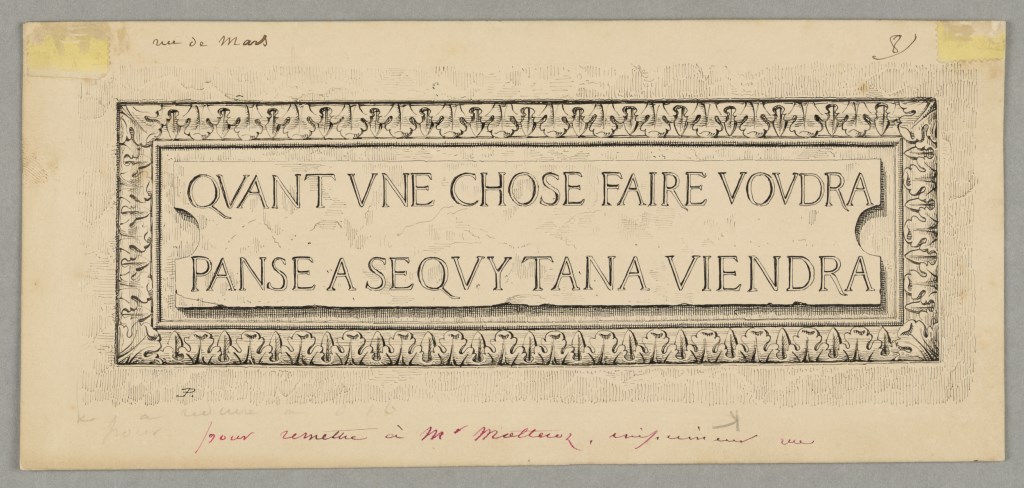 rue de Mars
8)
QVANT VNE CHOSE FAIRE VOVDRA
PANSE A SEQVY TANA VIENDRA
P.
pour
pour remettre à Mr Matteoz, imprimeur rue